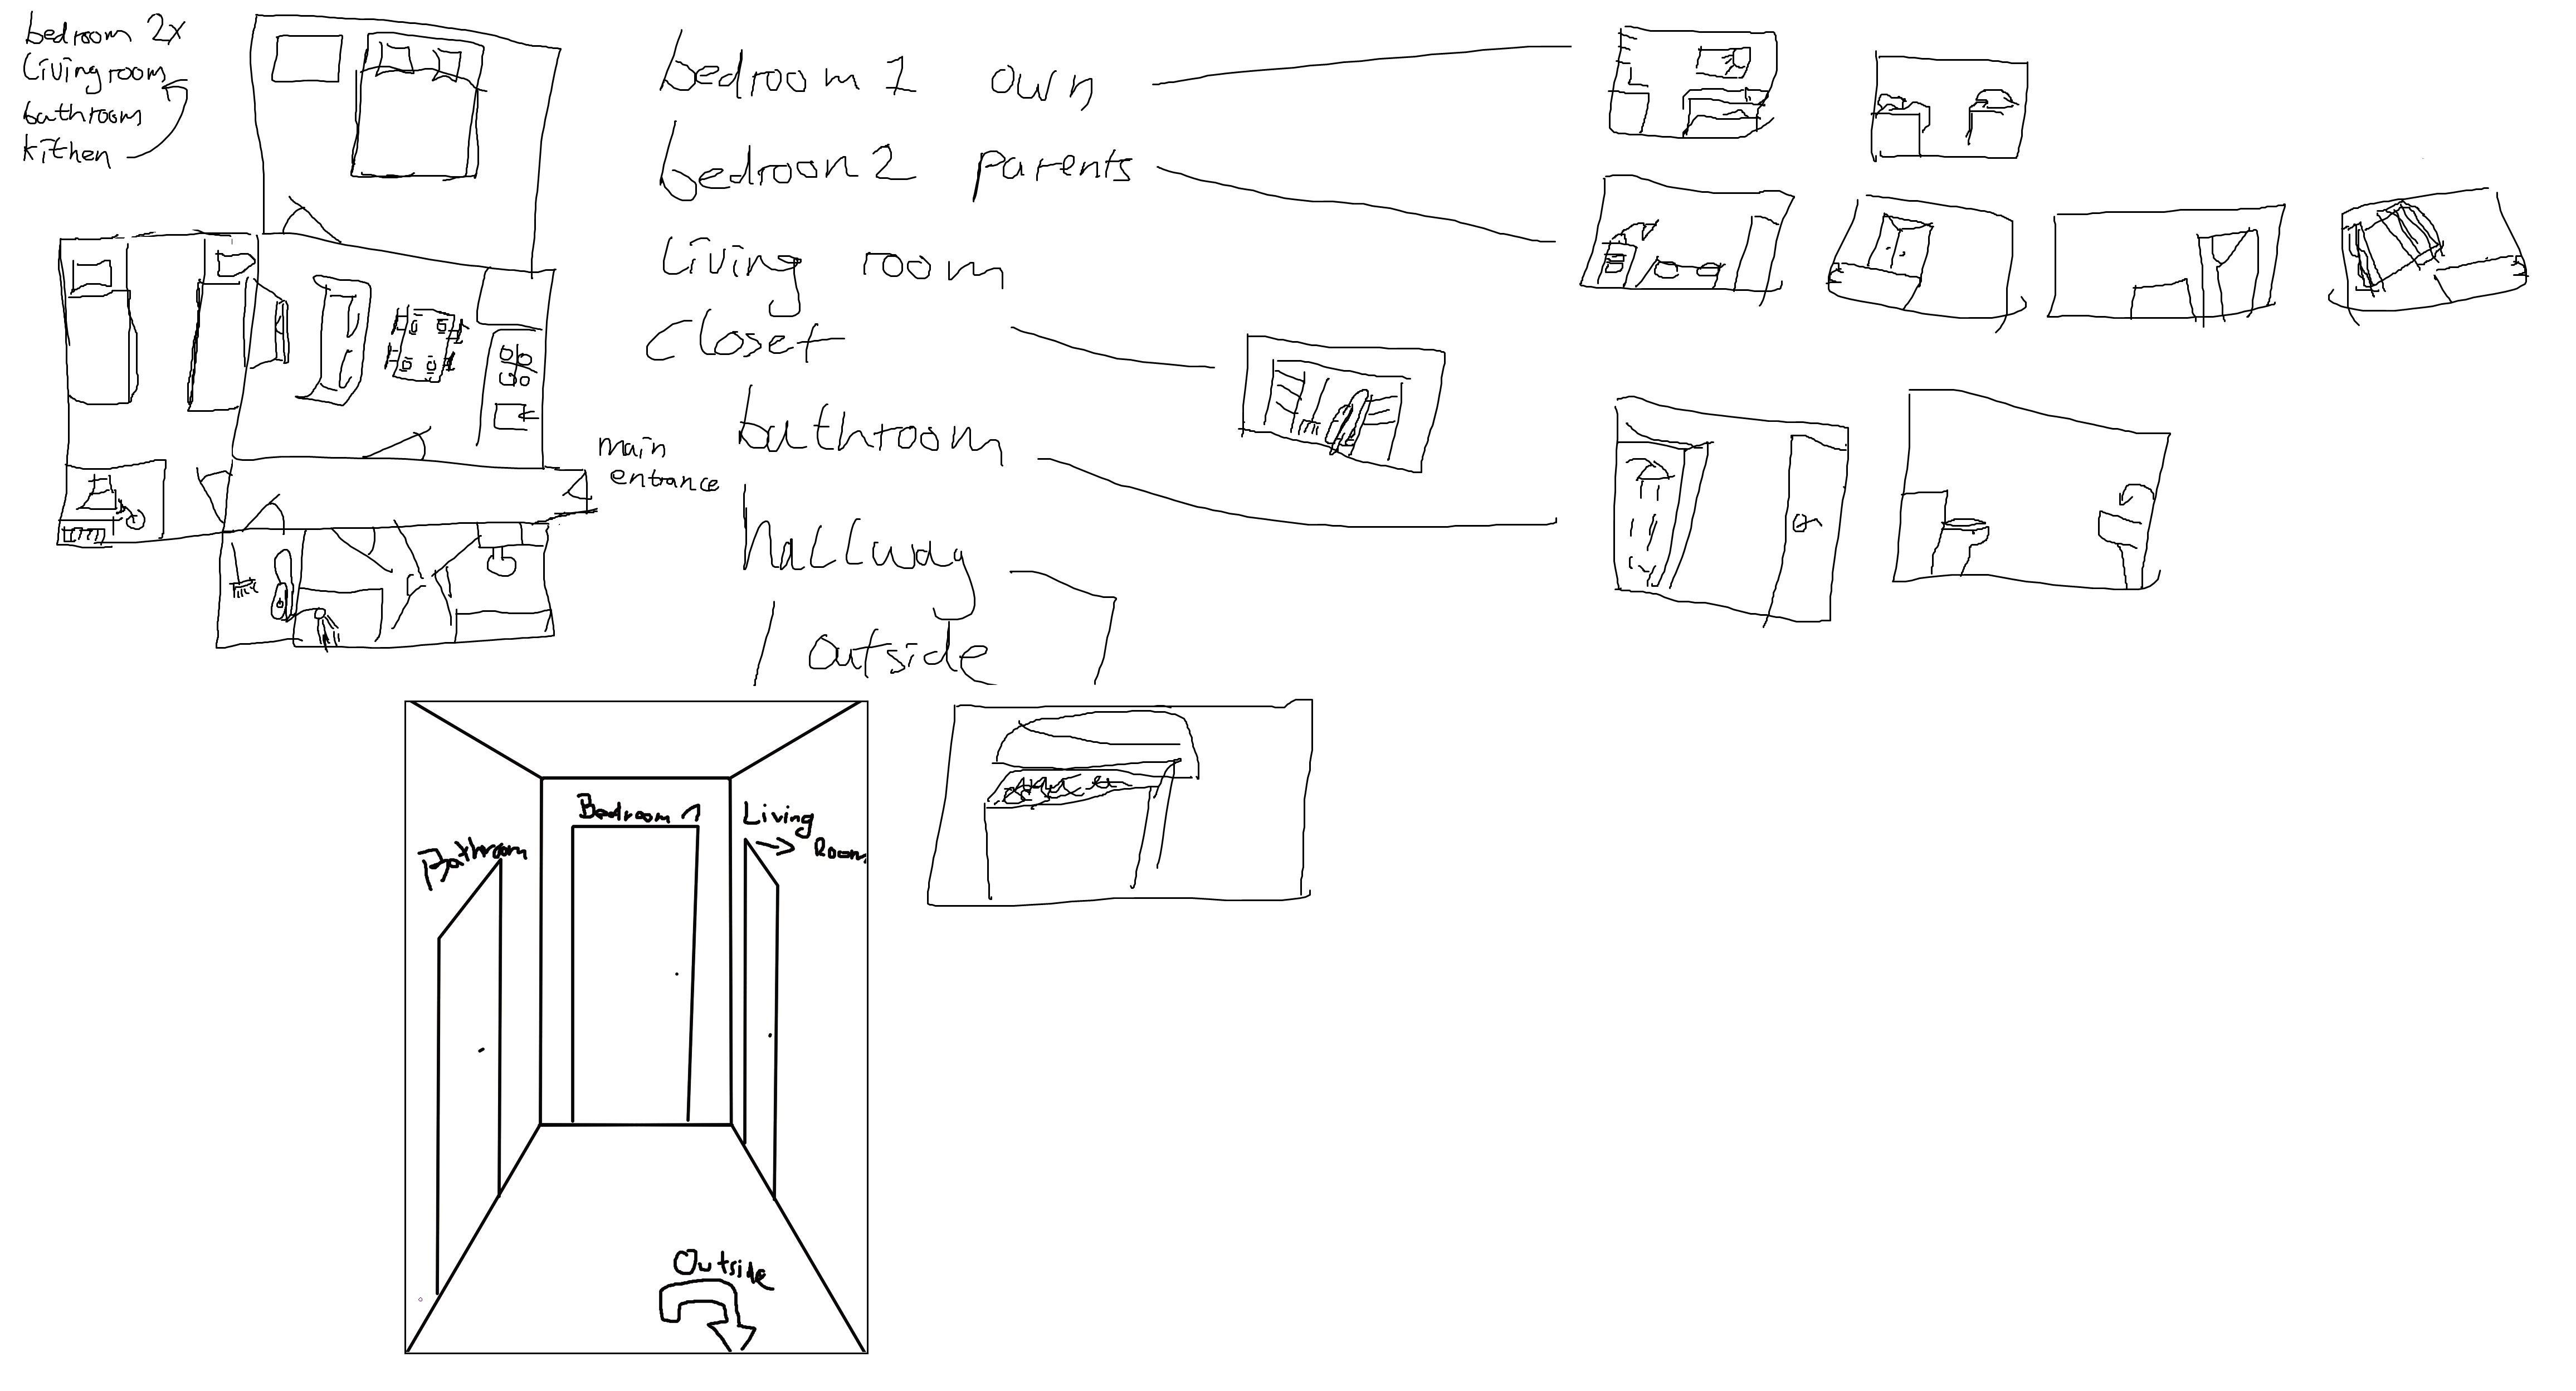 bedroom 2x
Living room
bathroom
kithen
main
entrance
bedroom 1 own
bedroon 2 parents
Living room
closet
bathroom
hallway
/ outside
Bathroom
Bedroom 1
Living
Room
Outside